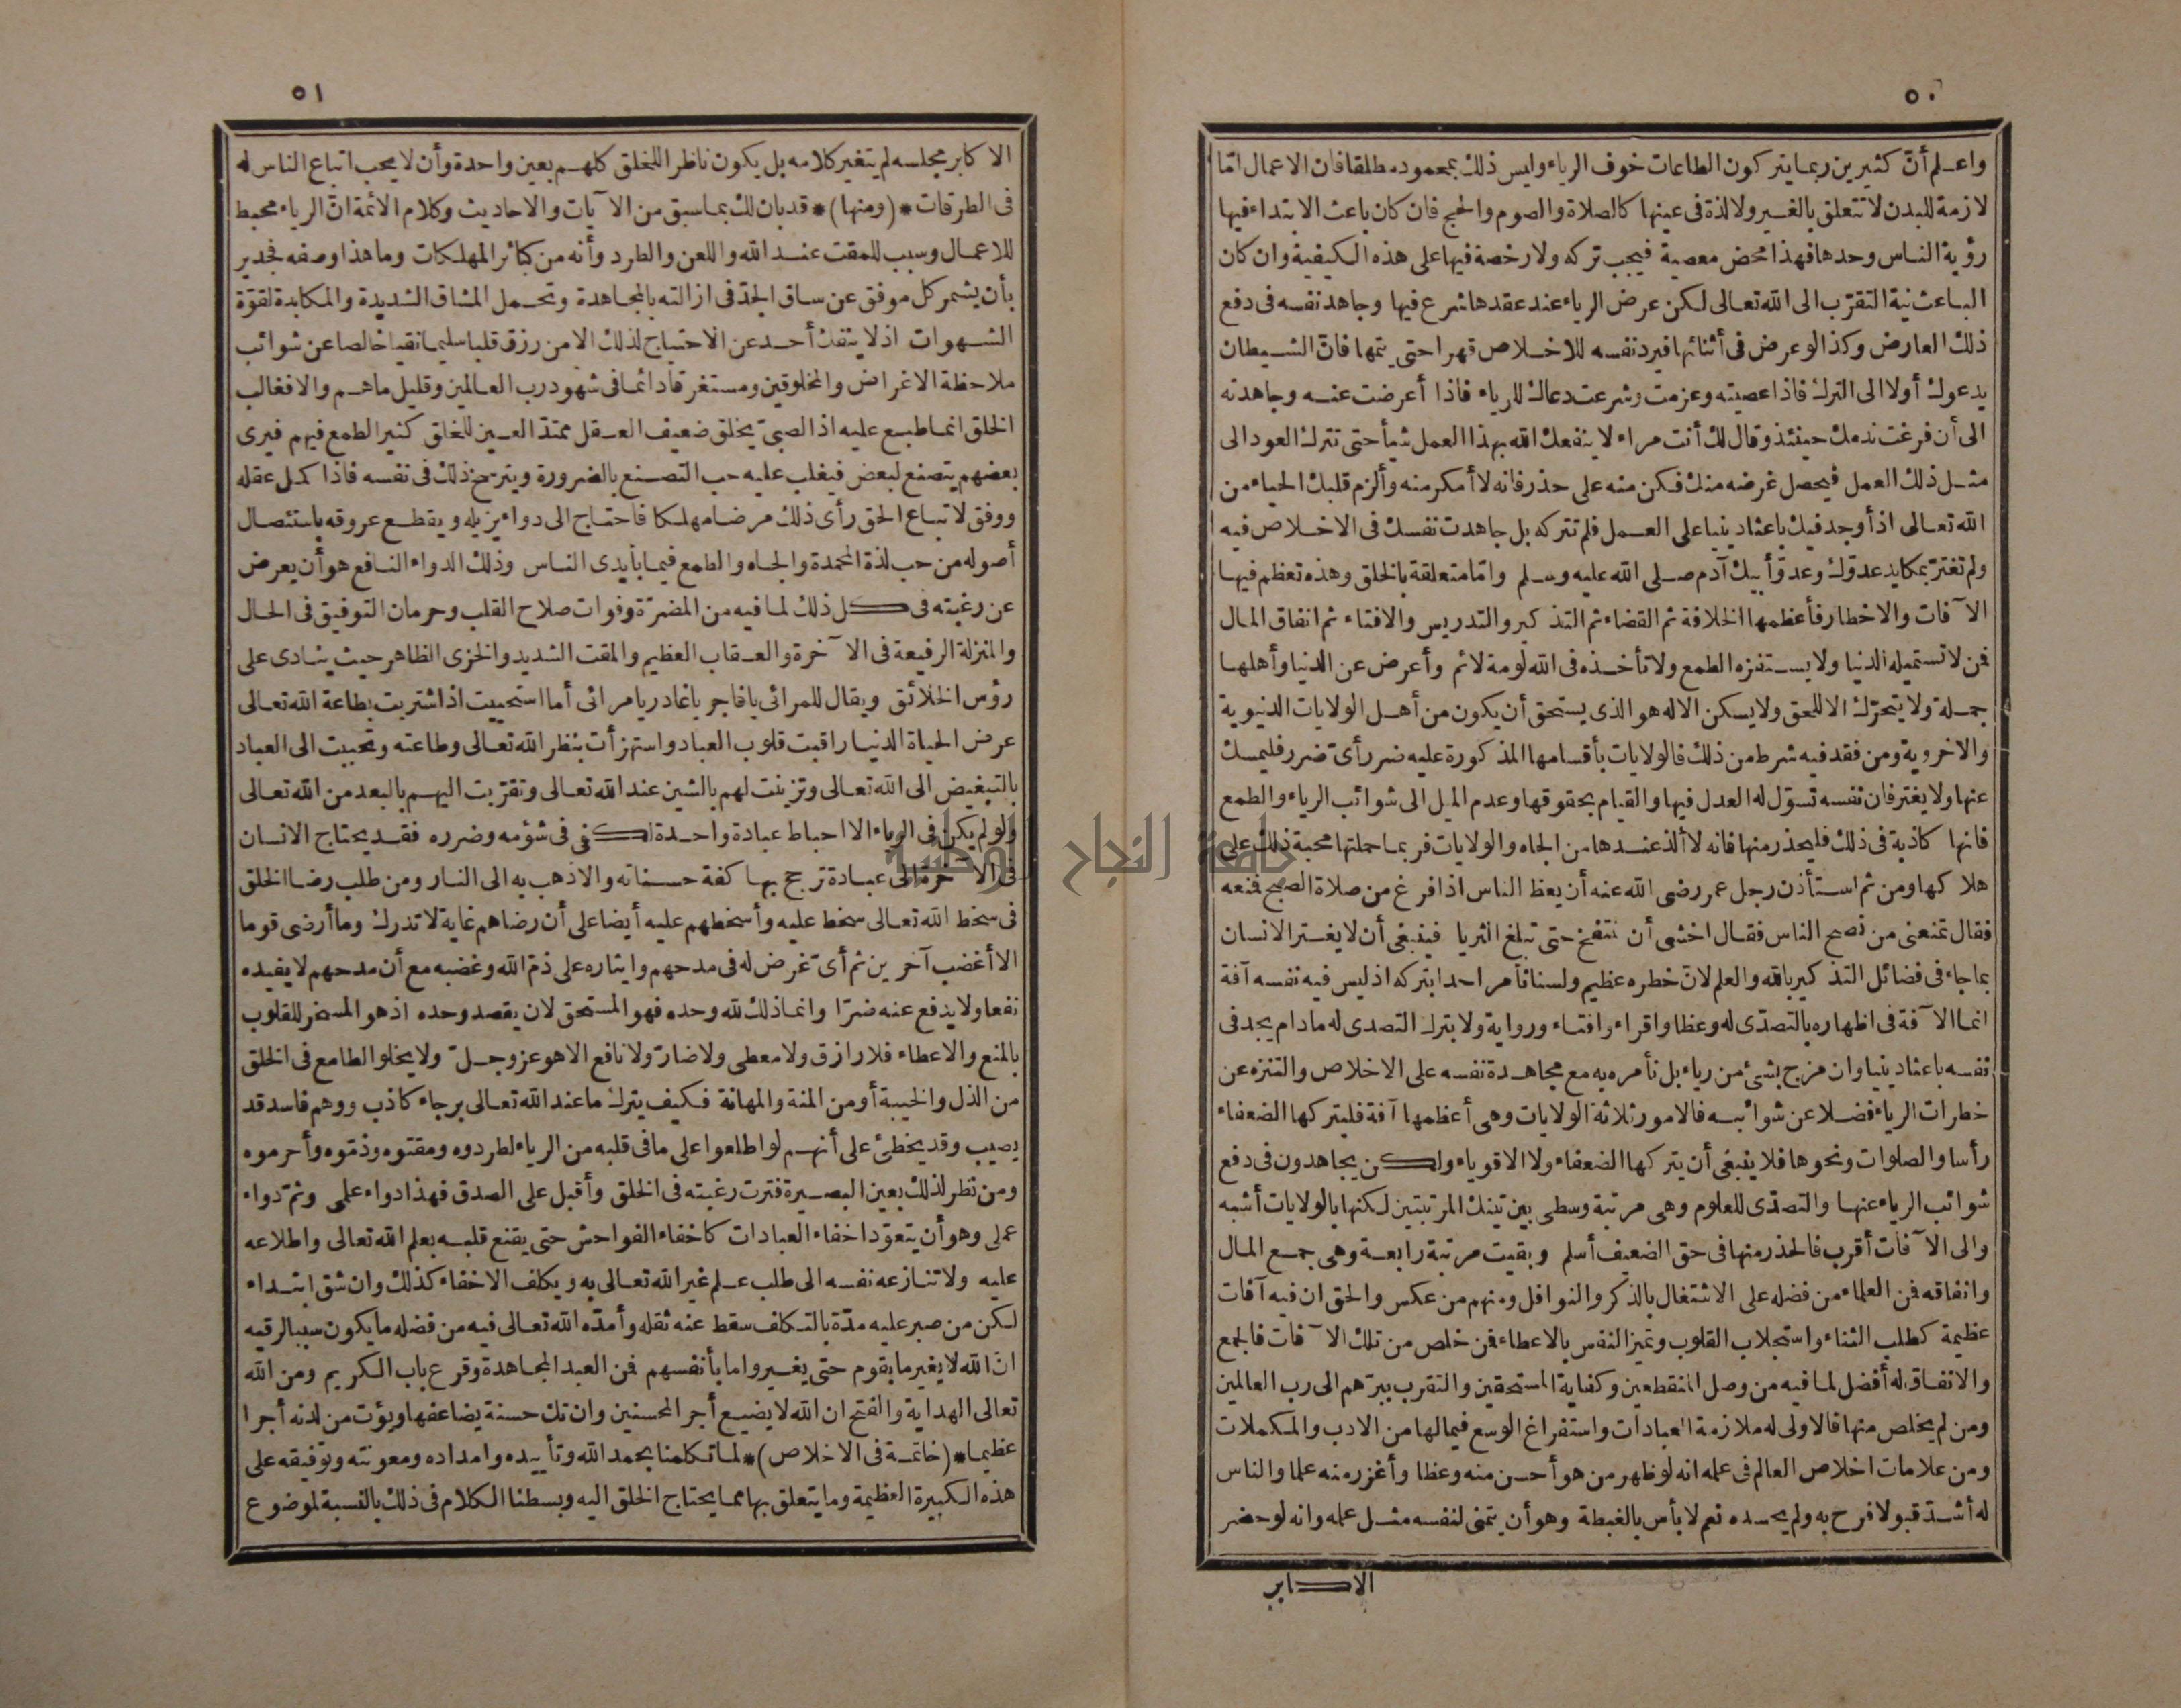 ٥٠
واعلم أنّ كثيرين ربما يتركون الطاعات خوف الرياء وليس ذلك بمحمود مطلقا فان الاعمال امّا
لازمة للبدن لا تتعلق بالغير ولا لذة فى عينها كالصلاة والصوم والحج فان كان باعث الابتداء فيها
رؤية الناس وحدها فهذا محض معصية فيجب تركه ولا رخصة فيها على هذه الكيفية وان كان
الباعث نية التقرّب الى الله تعالى لكن عرض الرياء عند عقدها شرع فيها وجاهد نفسه فى دفع
ذلك العارض وكذا لو عرض فى أثنائها فيرد نفسه للاخلاص قهرا حتى يتمها فانّ الشيطان
يدعوك أولا الى الترك فاذا عصيته وعزمت وشرعت دعاك للرياء فاذا أعرضت عنه وجاهدته
الى أن فرغت ندمك حينئذ وقال لك أنت مراء لا ينفعك الله بهذا العمل شيأ حتى تترك العود الى
مثل ذلك العمل فيحصل غرضه منك فكن منه على حذر فانه لا أمكر منه وألزم قلبك الحياء من
الله تعالى اذ أوجد فيك باعثا دينيا على العمل فلم تتركه بل جاهدت نفسك فى الاخلاص فيه
ولم تغترّ بمكايد عدوّك وعدوّ أبيك آدم صلى الله عليه وسلم وامّا متعلقة بالخلق وهذه تعظم فيها
الآفات والاخطار فأعظمها الخلافة ثم القضاء ثم التذكير والتدريس والافتاء ثم انفاق المال
فمن لا تستميله الدنيا ولا يستفزه الطمع ولا تأخذه فى الله لومة لائم وأعرض عن الدنيا وأهلها
جملة ولا يتحرّك الا للحق ولا يسكن الا له هو الذى يستحق أن يكون من أهل الولايات الدنيوية
والاخروية ومن فقد فيه شرط من ذلك فالولايات بأقسامها المذكورة عليه ضرر أىّ ضرر فليمسك
عنها ولا يغتر فان نفسه تسوّل له العدل فيها والقيام بحقوقها وعدم الميل الى شوائب الرياء والطمع
فانها كاذبة فى ذلك فليحذر منها فانه لا ألذ عندها من الجاه والولايات فربما حملتها محبة ذلك على
هلاكها ومن ثم استأذن رجل عمر رضى الله عنه أن يعظ الناس اذا فرغ من صلاة الصبح فمنعه
فقال تمنعنى من نصح الناس فقال اخشى أن تنتفخ حتى تبلغ الثريا فينبغى أن لا يغتر الانسان
بما جاء فى فضائل التذكير بالله والعلم لانّ خطره عظيم ولسنا نأمر احدا بتركه اذ ليس فيه نفسه آفة
انما الآفة فى اظهاره بالتصدّى له وعظا واقراء وافتاء ورواية ولا يترك التصدى له ما دام يجد فى
نفسه باعثا دينيا وان مزج بشئ من رياء بل نأمره به مع مجاهدة نفسه على الاخلاص والتنزه عن
خطرات الرياء فضلا عن شوائبه فالامور ثلاثة الولايات وهى أعظمها آفة فليتركها الضعفاء
رأسا والصلوات ونحوها فلا ينبغى أن يتركها الضعفاء ولا الاقوياء ولكن يجاهدون فى دفع
شوائب الرياء عنها والتصدّى للعلوم وهى مرتبة وسطى بين تينك المرتبتين لكنها بالولايات أشبه
والى الآفات أقرب فالحذر منها فى حق الضعيف أسلم وبقيت مرتبة رابعة وهى جمع المال
وانفاقه فمن العلماء من فضله على الاشتغال بالذكر والنوافل ومنهم من عكس والحق ان فيه آفات
عظيمة كطلب الثناء واستجلاب القلوب وتميز النفس بالاعطاء فمن خلص من تلك الآفات فالجمع
والانفاق له أفضل لما فيه من وصل المنقطعين وكفاية المستحقين والتقرب ببرّهم الى رب العالمين
ومن لم يخلص منها فالاولى له ملازمة العبادات واستفراغ الوسع فيما لها من الادب والمكملات
ومن علامات اخلاص العالم فى علمه انه لو ظهر من هو أحسن منه وعظا وأغزر منه علما والناس
له أشدّ قبولا فرح به ولم يحسده نعم لا بأس بالغبطة وهو أن يتمنى لنفسه مثل علمه وانه لو حضر
الاكابر
٥١
الاكابر مجلسه لم يتغير كلامه بل يكون ناظرا للخلق كلهم بعين واحدة وأن لا يحب اتباع الناس له
فى الطرقات *(ومنها)* قد بان لك بما سبق من الآيات والاحاديث وكلام الأئمة انّ الرياء محبط
للاعمال وسبب للمقت عند الله واللعن والطرد وأنه من كبائر المهلكات وما هذا وصفه فجدير
بأن يشمر كل موفق عن ساق الجدّ فى ازالته بالمجاهدة وتحمل المشاق الشديدة والمكابدة لقوّة
الشهوات اذ لا ينفك أحد عن الاحتياج لذلك الا من رزق قلبا سليما نقيا خالصا عن شوائب
ملاحظة الاغراض والمخلوقين ومستغرقا دائما فى شهود رب العالمين وقليل ما هم والا فغالب
الخلق انما طبع عليه اذ الصبىّ يخلق ضعيف العقل ممتدّ العين للخلق كثير الطمع فيهم فيرى
بعضهم يتصنع لبعض فيغلب عليه حب التصنع بالضرورة ويترسخ ذلك فى نفسه فاذا كمل عقله
ووفق لاتباع الحق رأى ذلك مرضا مهلكا فاحتاج الى دواء يزيله ويقطع عروقه باستئصال
أصوله من حب لذة المحمدة والجاه والطمع فيما بأيدى الناس وذلك الدواء النافع هو أن يعرض
عن رغبته فى كل ذلك لما فيه من المضرّة وفوات صلاح القلب وحرمان التوفيق فى الحال
والمنزلة الرفيعة فى الآخرة والعقاب العظيم والمقت الشديد والخزى الظاهر حيث ينادى على
رؤس الخلائق ويقال للمرائى يا فاجر يا غادر يا مرائى أما استحييت اذ اشتريت بطاعة الله تعالى
عرض الحياة الدنيا راقبت قلوب العباد واستهزأت بنظر الله تعالى وطاعته وتحببت الى العباد
بالتبغيض الى الله تعالى وتزينت لهم بالشين عند الله تعالى وتقرّبت اليهم بالبعد من الله تعالى
ولو لم يكن فى الرياء الا احباط عبادة واحدة لكفى فى شؤمه وضرره فقد يحتاج الانسان
فى الآخرة الى عبادة ترجح بها كفة حسناته والا ذهب به الى النار ومن طلب رضا الخلق
فى سخط الله تعالى سخط عليه وأسخطهم عليه أيضا على أن رضاهم غاية لا تدرك وما أرضى قوما
الا أغضب آخرين ثم أىّ غرض له فى مدحهم وايثاره على ذمّ الله وغضبه مع أن مدحهم لا يفيده
نفعا ولا يدفع عنه ضرّا وانما ذلك لله وحده فهو المستحق لان يقصد وحده اذ هو المسخر للقلوب
بالمنع والاعطاء فلا رازق ولا معطى ولا ضارّ ولا نافع الا هو عز وجلّ ولا يخلو الطامع فى الخلق
من الذل والخيبة أو من المنة والمهانة فكيف يترك ما عند الله تعالى برجاء كاذب ووهم فاسد قد
يصيب وقد يخطئ على أنهم لو اطلعوا على ما فى قلبه من الرياء لطردوه ومقتوه وذمّوه وأحرموه
ومن نظر لذلك بعين البصيرة فترت رغبته فى الخلق وأقبل على الصدق فهذا دواء علمى وثمّ دواء
عملى وهو أن يتعوّد اخفاء العبادات كاخفاء الفواحش حتى يقنع قلبه بعلم الله تعالى واطلاعه
عليه ولا تنازعه نفسه الى طلب علم غير الله تعالى به ويكلف الاخفاء كذلك وان شق ابتداء
لكن من صبر عليه مدّة بالتكلف سقط عنه ثقله وأمدّه الله تعالى فيه من فضله ما يكون سببا لرقيه
انّ الله لا يغير ما بقوم حتى يغيروا ما بأنفسهم فمن العبد المجاهدة وقرع باب الكريم ومن الله
تعالى الهداية والفتح ان الله لا يضيع أجر المحسنين وان تك حسنة يضاعفها ويؤت من لدنه أجرا
عظيما *(خاتمة فى الاخلاص)* لما تكلمنا بحمد الله وتأييده وامداده ومعونته وتوفيقه على
هذه الكبيرة العظيمة وما يتعلق بها مما يحتاج الخلق اليه وبسطنا الكلام فى ذلك بالنسبة لموضوع
جامعة النجاح الوطنية